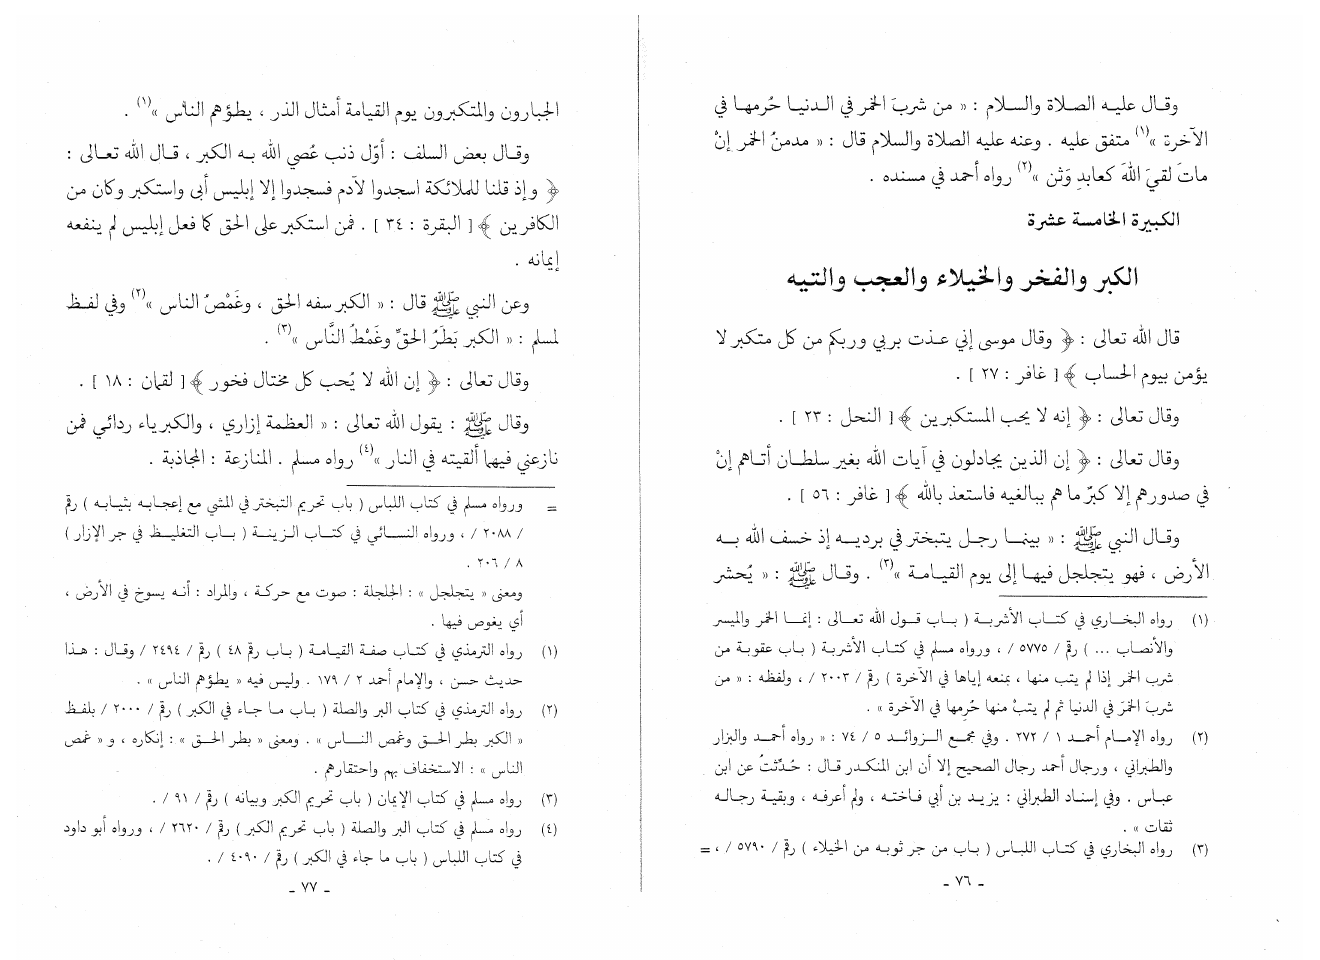 وقال عليه الصلاة والسلام : « من شربَ الخمر في الدنيا حُرمها في
الآخرة »(١) متفق عليه . وعنه عليه الصلاة والسلام قال : « مدمنُ الخمر إنْ
ماتَ لقيَ اللهَ كعابدِ وَثن »(٢) رواه أحمد في مسنده .
الكبيرة الخامسة عشرة
الكبر والفخر والخيلاء والعجب والتيه
قال الله تعالى : ﴿ وقال موسى إني عذت بربي وربكم من كل متكبر لا
يؤمن بيوم الحساب ﴾ [ غافر : ٢٧ ] .
وقال تعالى : ﴿ إنه لا يحب المستكبرين ﴾ [ النحل : ٢٣ ] .
وقال تعالى : ﴿ إن الذين يجادلون في آيات الله بغير سلطان أتاهم إنْ
في صدورهم إلا كبرٌ ما هم ببالغيه فاستعذ بالله ﴾ [ غافر : ٥٦ ] .
وقال النبي ﷺ : « بينما رجل يتبختر في برديه إذ خسف الله به
الأرض ، فهو يتجلجل فيها إلى يوم القيامة »(٣) . وقال ﷺ : « يُحشر
(١) رواه البخاري في كتاب الأشربة ( باب قول الله تعالى : إنما الخمر والميسر
والأنصاب ... ) رقم / ٥٧٧٥ / ، ورواه مسلم في كتاب الأشربة ( باب عقوبة من
شرب الخمر إذا لم يتب منها ، بمنعه إياها في الآخرة ) رقم / ٢٠٠٣ / ، ولفظه : « من
شربَ الخمرَ في الدنيا ثم لم يتبْ منها حُرِمها في الآخرة » .
(٢) رواه الإمام أحمد ١ / ٢٧٢ . وفي مجمع الزوائد ٥ / ٧٤ : « رواه أحمد والبزار
والطبراني ، ورجال أحمد رجال الصحيح إلا أن ابن المنكدر قال : حُدِّثتُ عن ابن
عباس . وفي إسناد الطبراني : يزيد بن أبي فاخته ، ولم أعرفه ، وبقية رجاله
ثقات » .
(٣) رواه البخاري في كتاب اللباس ( باب من جر ثوبه من الخيلاء ) رقم / ٥٧٩٠ / ، =
- ٧٦ -
الجبارون والمتكبرون يوم القيامة أمثال الذر ، يطؤهم الناس »(١) .
وقال بعض السلف : أوّل ذنب عُصي الله به الكبر ، قال الله تعالى :
﴿ وإذ قلنا للملائكة اسجدوا لآدم فسجدوا إلا إبليس أبى واستكبر وكان من
الكافرين ﴾ [ البقرة : ٣٤ ] . فمن استكبر على الحق كما فعل إبليس لم ينفعه
إيمانه .
وعن النبي ﷺ قال : « الكبر سفه الحق ، وغَمْصُ الناس »(٢) وفي لفظ
لمسلم : « الكبر بَطَرُ الحقِّ وغَمْطُ النَّاس »(٣) .
وقال تعالى : ﴿ إن الله لا يُحب كل مختال فخور ﴾ [ لقمان : ١٨ ] .
وقال ﷺ : يقول الله تعالى : « العظمة إزاري ، والكبرياء ردائي فمن
نازعني فيهما ألقيته في النار »(٤) رواه مسلم . المنازعة : المجاذبة .
= ورواه مسلم في كتاب اللباس ( باب تحريم التبختر في المشي مع إعجابه بثيابه ) رقم
/ ٢٠٨٨ / ، ورواه النسائي في كتاب الزينة ( باب التغليظ في جر الإزار )
٨ / ٢٠٦ .
ومعنى « يتجلجل » : الجلجلة : صوت مع حركة ، والمراد : أنه يسوخ في الأرض ،
أي يغوص فيها .
(١) رواه الترمذي في كتاب صفة القيامة ( باب رقم ٤٨ ) رقم / ٢٤٩٤ / وقال : هذا
حديث حسن ، والإمام أحمد ٢ / ١٧٩ . وليس فيه « يطؤهم الناس » .
(٢) رواه الترمذي في كتاب البر والصلة ( باب ما جاء في الكبر ) رقم / ٢٠٠٠ / بلفظ
« الكبر بطر الحق وغمص الناس » . ومعنى « بطر الحق » : إنكاره ، و « غمص
الناس » : الاستخفاف بهم واحتقارهم .
(٣) رواه مسلم في كتاب الإيمان ( باب تحريم الكبر وبيانه ) رقم / ٩١ / .
(٤) رواه مسلم في كتاب البر والصلة ( باب تحريم الكبر ) رقم / ٢٦٢٠ / ، ورواه أبو داود
في كتاب اللباس ( باب ما جاء في الكبر ) رقم / ٤٠٩٠ / .
- ٧٧ -